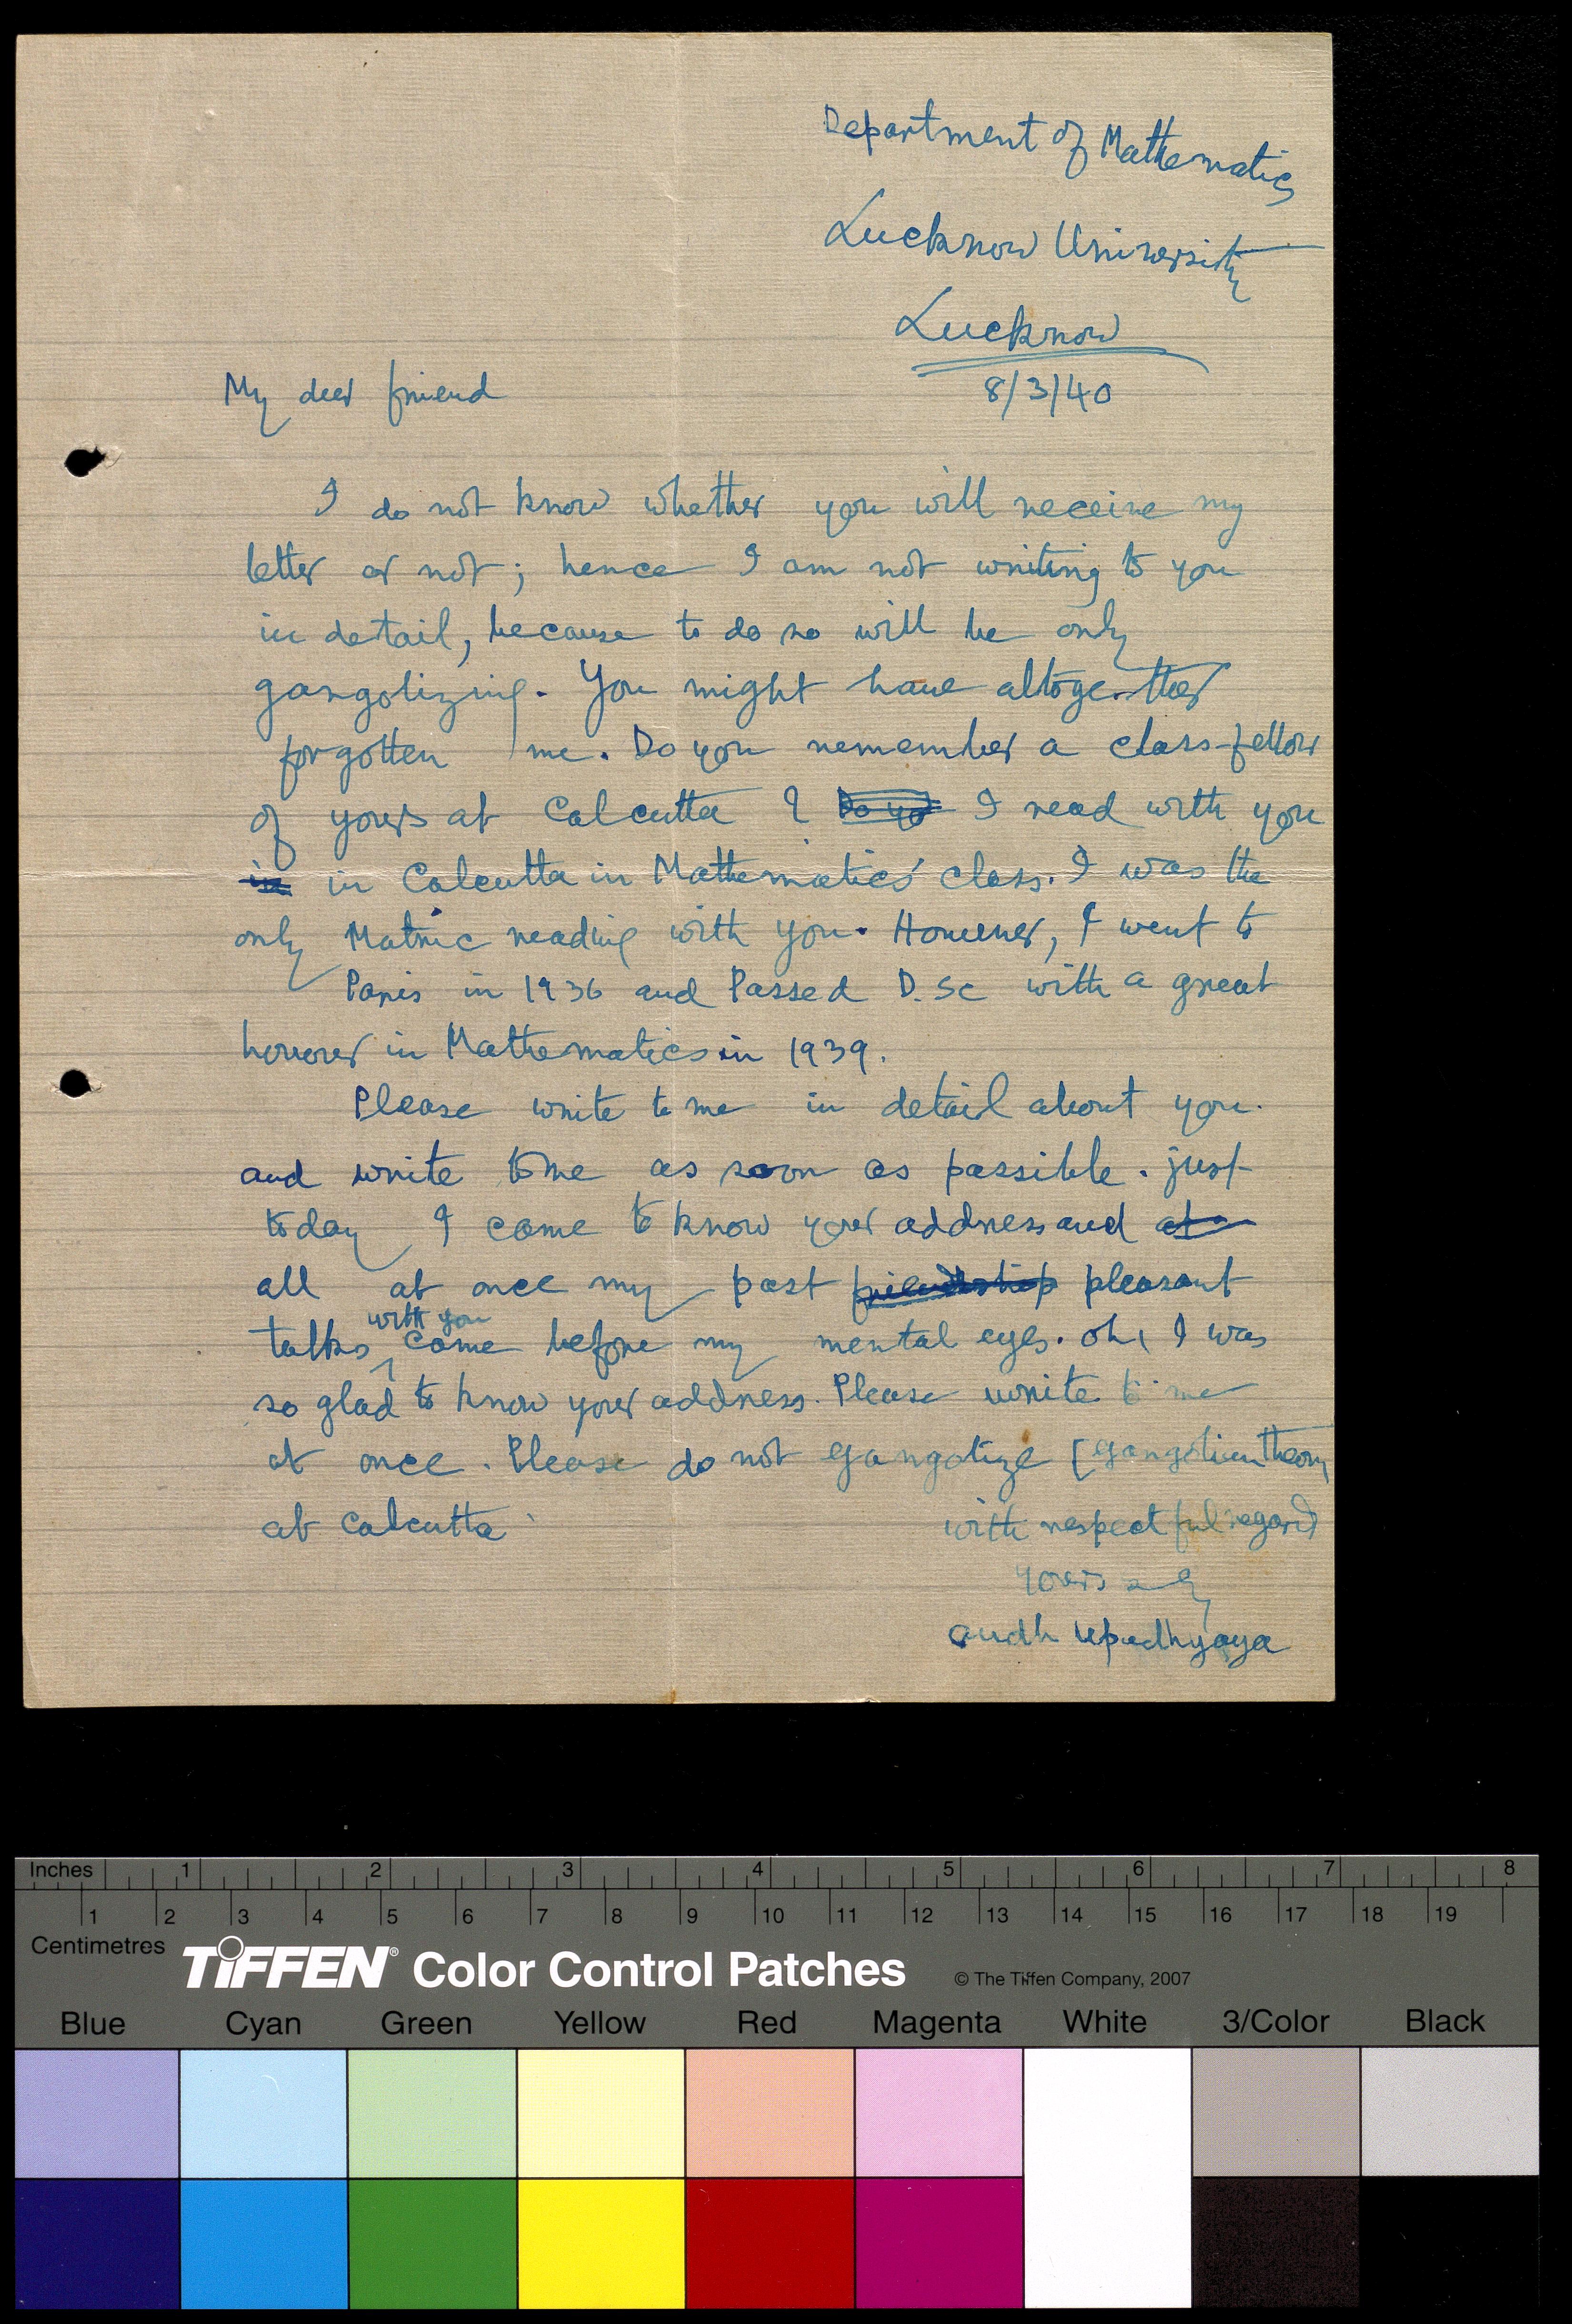 Department of Mathematics
Lucknow University
Lucknow
8/3/40
My dear friend
I do not know whether you will receive my
letter or not; hence I am not writing to you
in detail, because to do so will be only
gangolizing. You might have altogether
forgotten me. Do you remember a class-fellow
of yours at Calcutta ? Do yo I read with you
in in Calcutta in Mathematics' class. I was the
only Matric reading with you. However, I went to
Paris in 1936 and Passed D. Sc with a great
honour in Mathematics in 1939.
Please write to me in detail about you.
and write to me as soon as possible. just
today I came to know your address and at
all at once my past friendship pleasant
with you
talks come before my mental eyes. oh, I was
so glad to know your address. Please write to me
at once. Please do not gangolize [gangolian theory
at Calcutta
with respectful regard
yours
audh upadhyaya
Inches 1 2 3 4 5 6 7 8
1 2 3 4 5 6 7 8 9 10 11 12 13 14 15 16 17 18 19
Centimetres
TIFFEN® Color Control Patches © The Tiffen Company, 2007
Blue Cyan Green Yellow Red Magenta White 3/Color Black